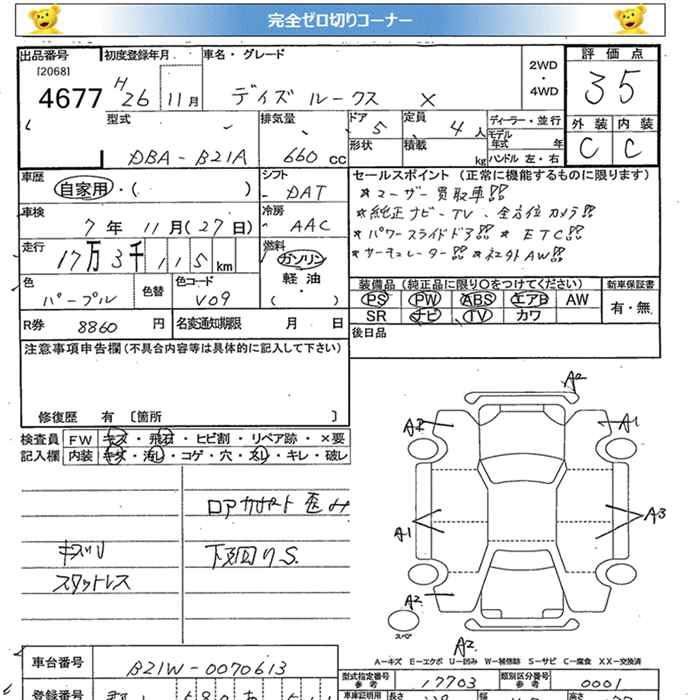 完全ゼロ切りコーナー
出品番号 初度登録年月 車名・グレード 評価点
[2068] 2WD
4677 H26 11月 デイズ ルークス X ・ 35
4WD
型式 排気量 ドア 5 定員 4人 ディーラー・並行 外装 内装
DBA-B21A 660cc 形状 積載 kg モデル年式 年 C C
ハンドル 左・右
車歴 シフト セールスポイント (正常に機能するものに限ります)
自家用・( ) DAT *ユーザー買取車!!
車検 冷房 *純正ナビ・TV、全方位カメラ!!
7年11月(27日) AAC *パワースライドドア!! *ETC!!
走行 燃料 *サーキュレーター!! *社外AW!!
17万3千115km ガソリン
軽油
色 色替 色コード ( ・ ) 装備品 (純正品に限り○をつけてください) 新車保証書
パープル V09 PS PW ABS エアB AW 有・無
R券 8860円 名変通知期限 月 日 SR ナビ TV カワ
後日品
注意事項申告欄(不具合内容等は具体的に記入して下さい)
修復歴 有 〔箇所 〕
検査員 FW キズ・飛石・ヒビ割・リペア跡・×要
記入欄 内装 キズ・汚し・コゲ・穴・スレ・キレ・破レ
A2
A2 A1
ロアサポート歪み
A1 A3
キズU 下回りS.
スタッドレス
A2
スペア
A2
A-キズ E-エクボ U-凹み W-補修跡 S-サビ C-腐食 XX-交換済
車台番号 B21W-0070613
型式指定番号 参考 17703 類別区分番号 参考 0001
登録番号
車庫証明用 参考 長さ 幅 高さ